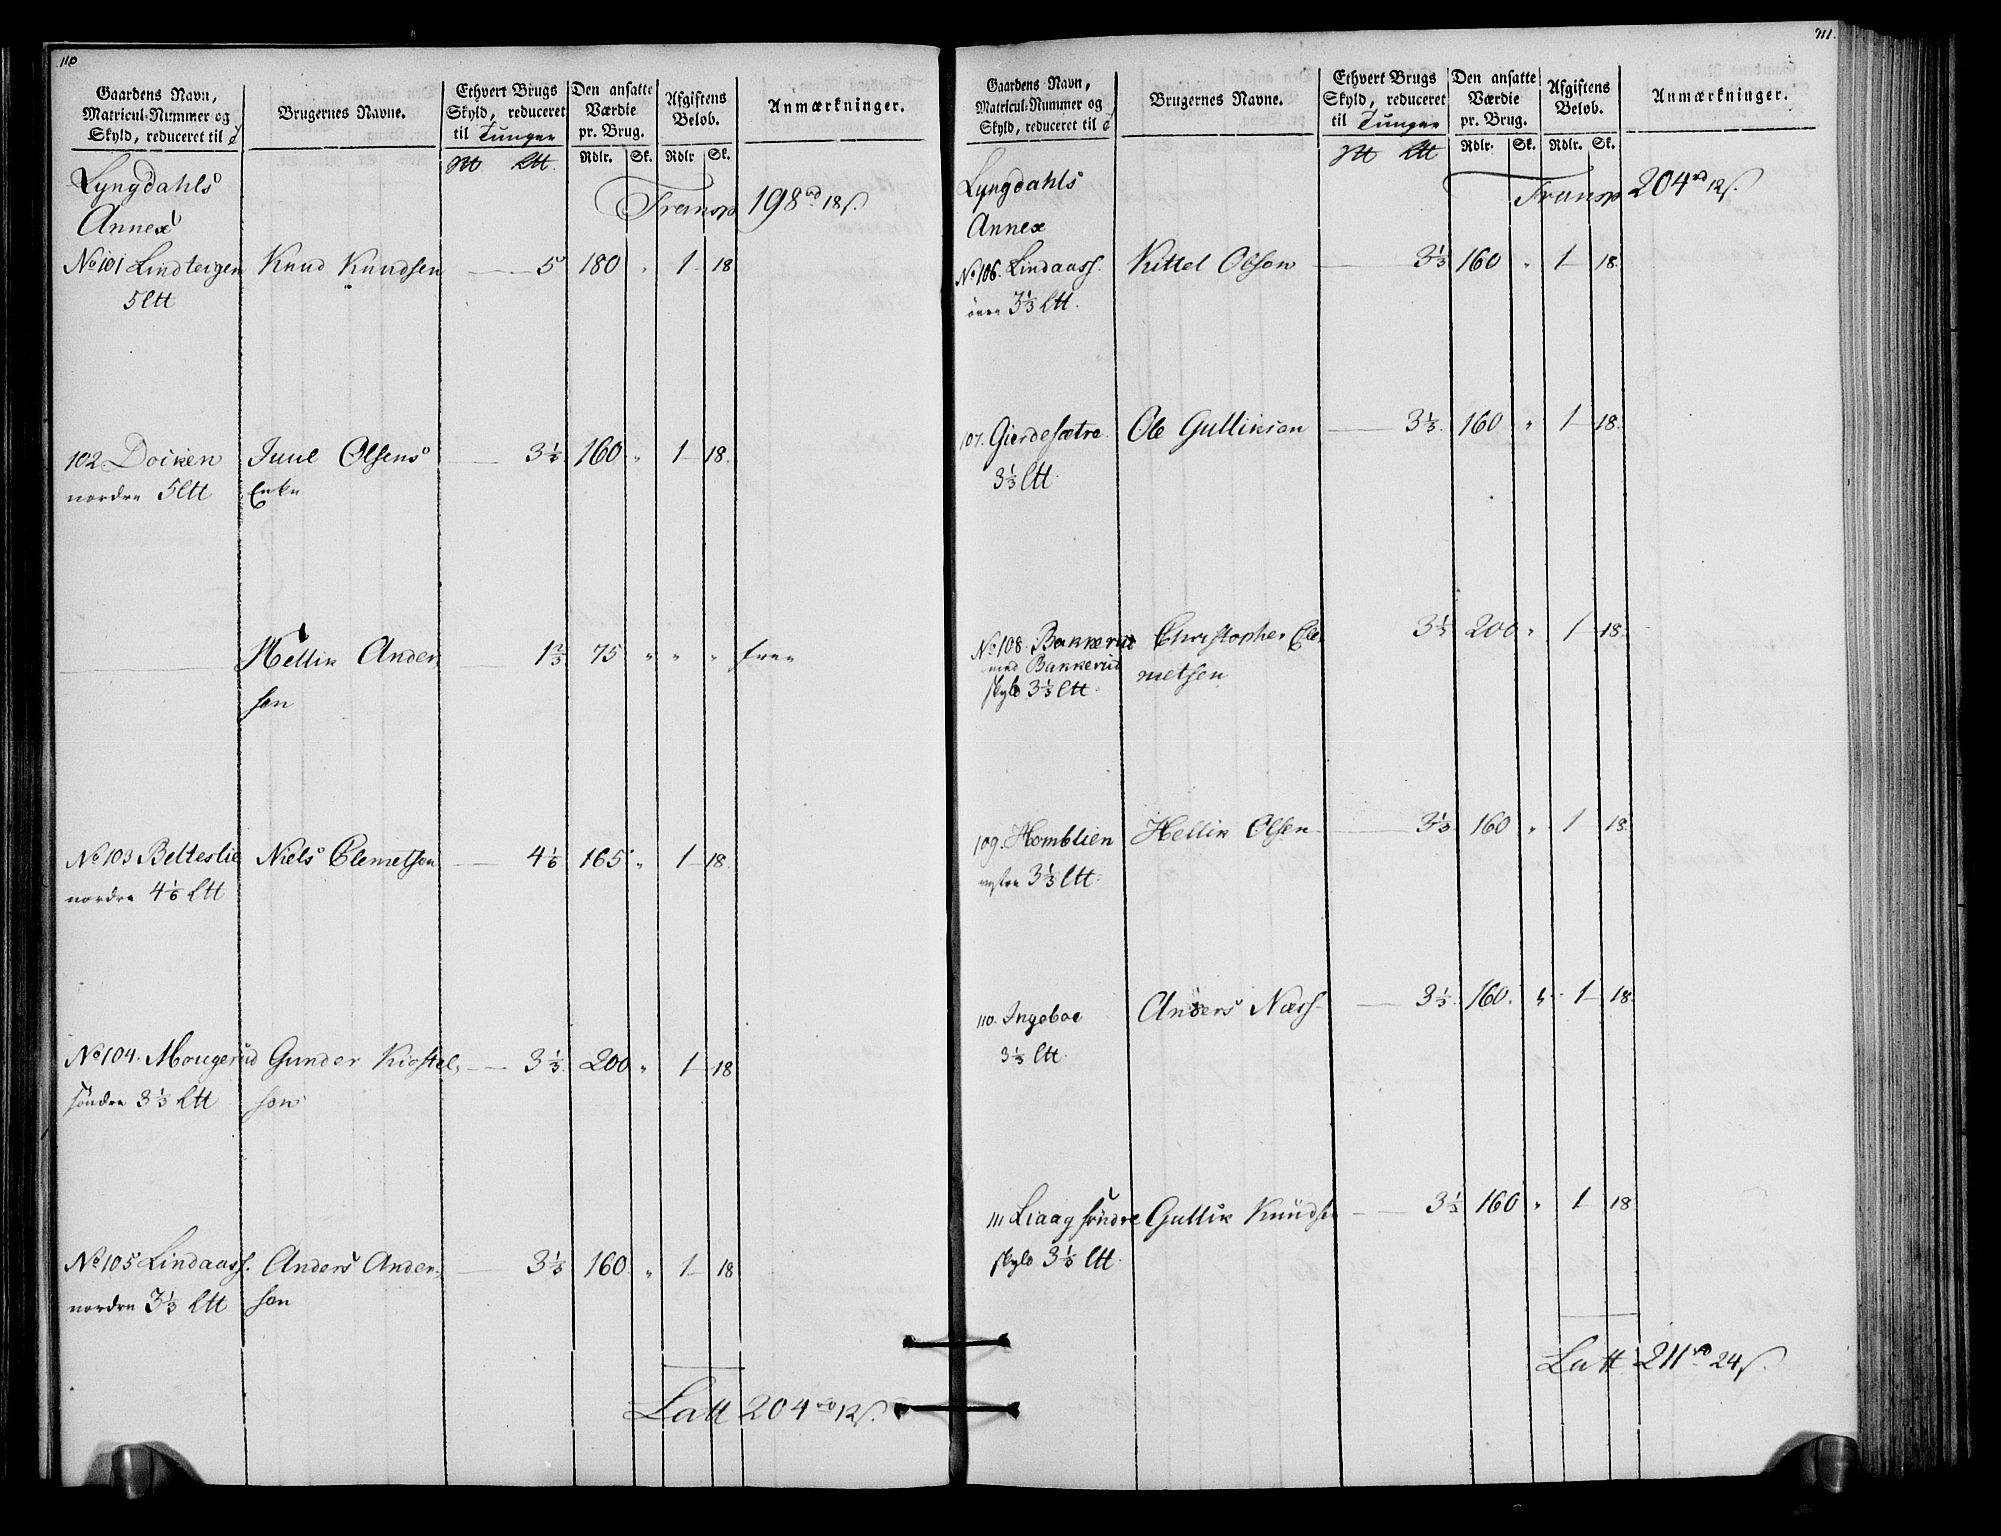 110
Gaardens Navn,
Matricul-Nummer og
Skyld, reduceret til
Brugernes Navne.
Ethvert Brugs
Skyld, reduceret
til Tunger
Den ansatte
Værdie
pr. Brug.
Afgiftens
Beløb.
Anmærkninger.
Rdlr. Sk. Rdlr. Sk.
Lyngdahls
Annex
Transp 198 rd 18 s.
No 101 Lindteigen Knud Knudsen 5 180 " 1 18
5 Ltt
102 Docken Juul Olsens 3 1/3 160 " 1 18.
nordre 5 Ltt Enke
Hellik Ander 1 2/3 75 " " " free
sen
No 103 Belteslie Niels Clemetsen 4 1/6 165 " 1 18.
nordre 4 1/6 Ltt
No 104. Mougerud Gunder Kiostel, 3 1/3. 200 " 1 18
søndre 3 1/3 Ltt sen
No 105 Lindaass. Anders Ander, 3 1/3 160 " 1 18
nordre 3 1/3 Ltt sen
Latt 204 rd 12 s.
111.
Gaardens Navn,
Matricul-Nummer og
Skyld, reduceret til
Brugernes Navne.
Ethvert Brugs
Skyld, reduceret
til Tunger
Den ansatte
Værdie
pr. Brug.
Afgiftens
Beløb.
Anmærkninger.
Rdlr. Sk. Rdlr. Sk.
Lyngdahls
Annex
Transp 204 rd 12 s.
No 106. Lindaass. Kittel Olsen 3 1/3 160 " 1 18.
øvre 3 1/3 Ltt.
107. Gierdesætre Ole Gulliksen 3 1/3. 160 " 1 18.
3 1/3 Ltt.
No 108. Bakkerud Christopher Cle 3 1/3 200 " 1 18.
med Bakkerud metsen
skyld 3 1/3 Ltt.
109. Homblien Hellik Olsen 3 1/3 160 " 1 18.
vestre 3 1/3 Ltt.
110. Ingeboe Anders Næss 3 1/3. 160. " 1 18.
3 1/3 Ltt.
111 Liaag søndre Gullik Knudsen 3 1/3 160 " 1 18
skyld 3 1/3 Ltt.
Latt 211 rd 24 s.